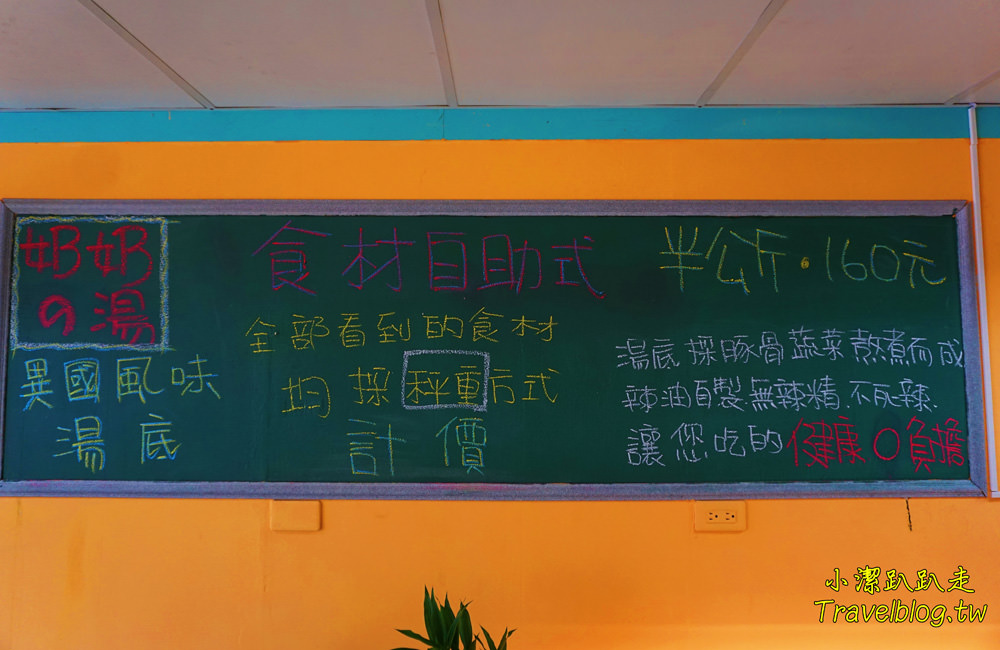 奶奶
の湯
異國風味
湯底
食材自助式
全部看到的食材
均採秤重方式
計價
半公斤.160元
湯底採豚骨蔬菜熬煮而成
辣油自製無辣精.不死辣.
讓您吃的健康0負擔
小潔趴趴走
Travelblog.tw